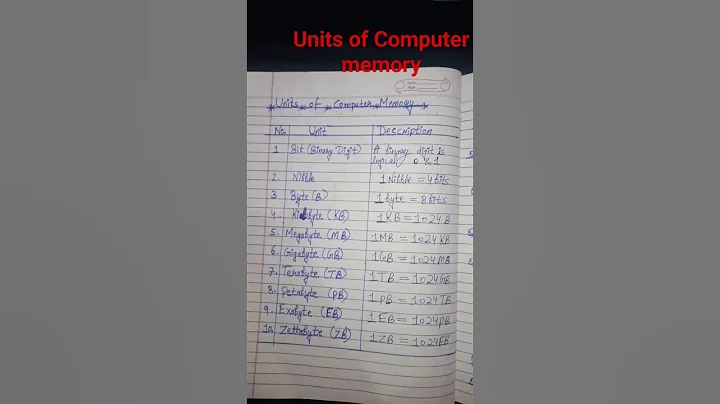 Units of Computer
memory
Units of Computer Memory
No. Unit Description
1 Bit (Binary Digit) A binary digit is
logical 0 & 1
2. Nibble 1 Nibble = 4 bits
3 Byte (B) 1 byte = 8 bits
4. Kilobyte (KB) 1 KB = 1024 B
5. Megabyte (MB) 1 MB = 1024 KB
6. Gigabyte (GB) 1 GB = 1024 MB
7. Terabyte (TB) 1 TB = 1024 GB
8. Petabyte (PB) 1 PB = 1024 TB
9. Exabyte (EB) 1 EB = 1024 PB
10. Zettabyte (ZB) 1 ZB = 1024 EB